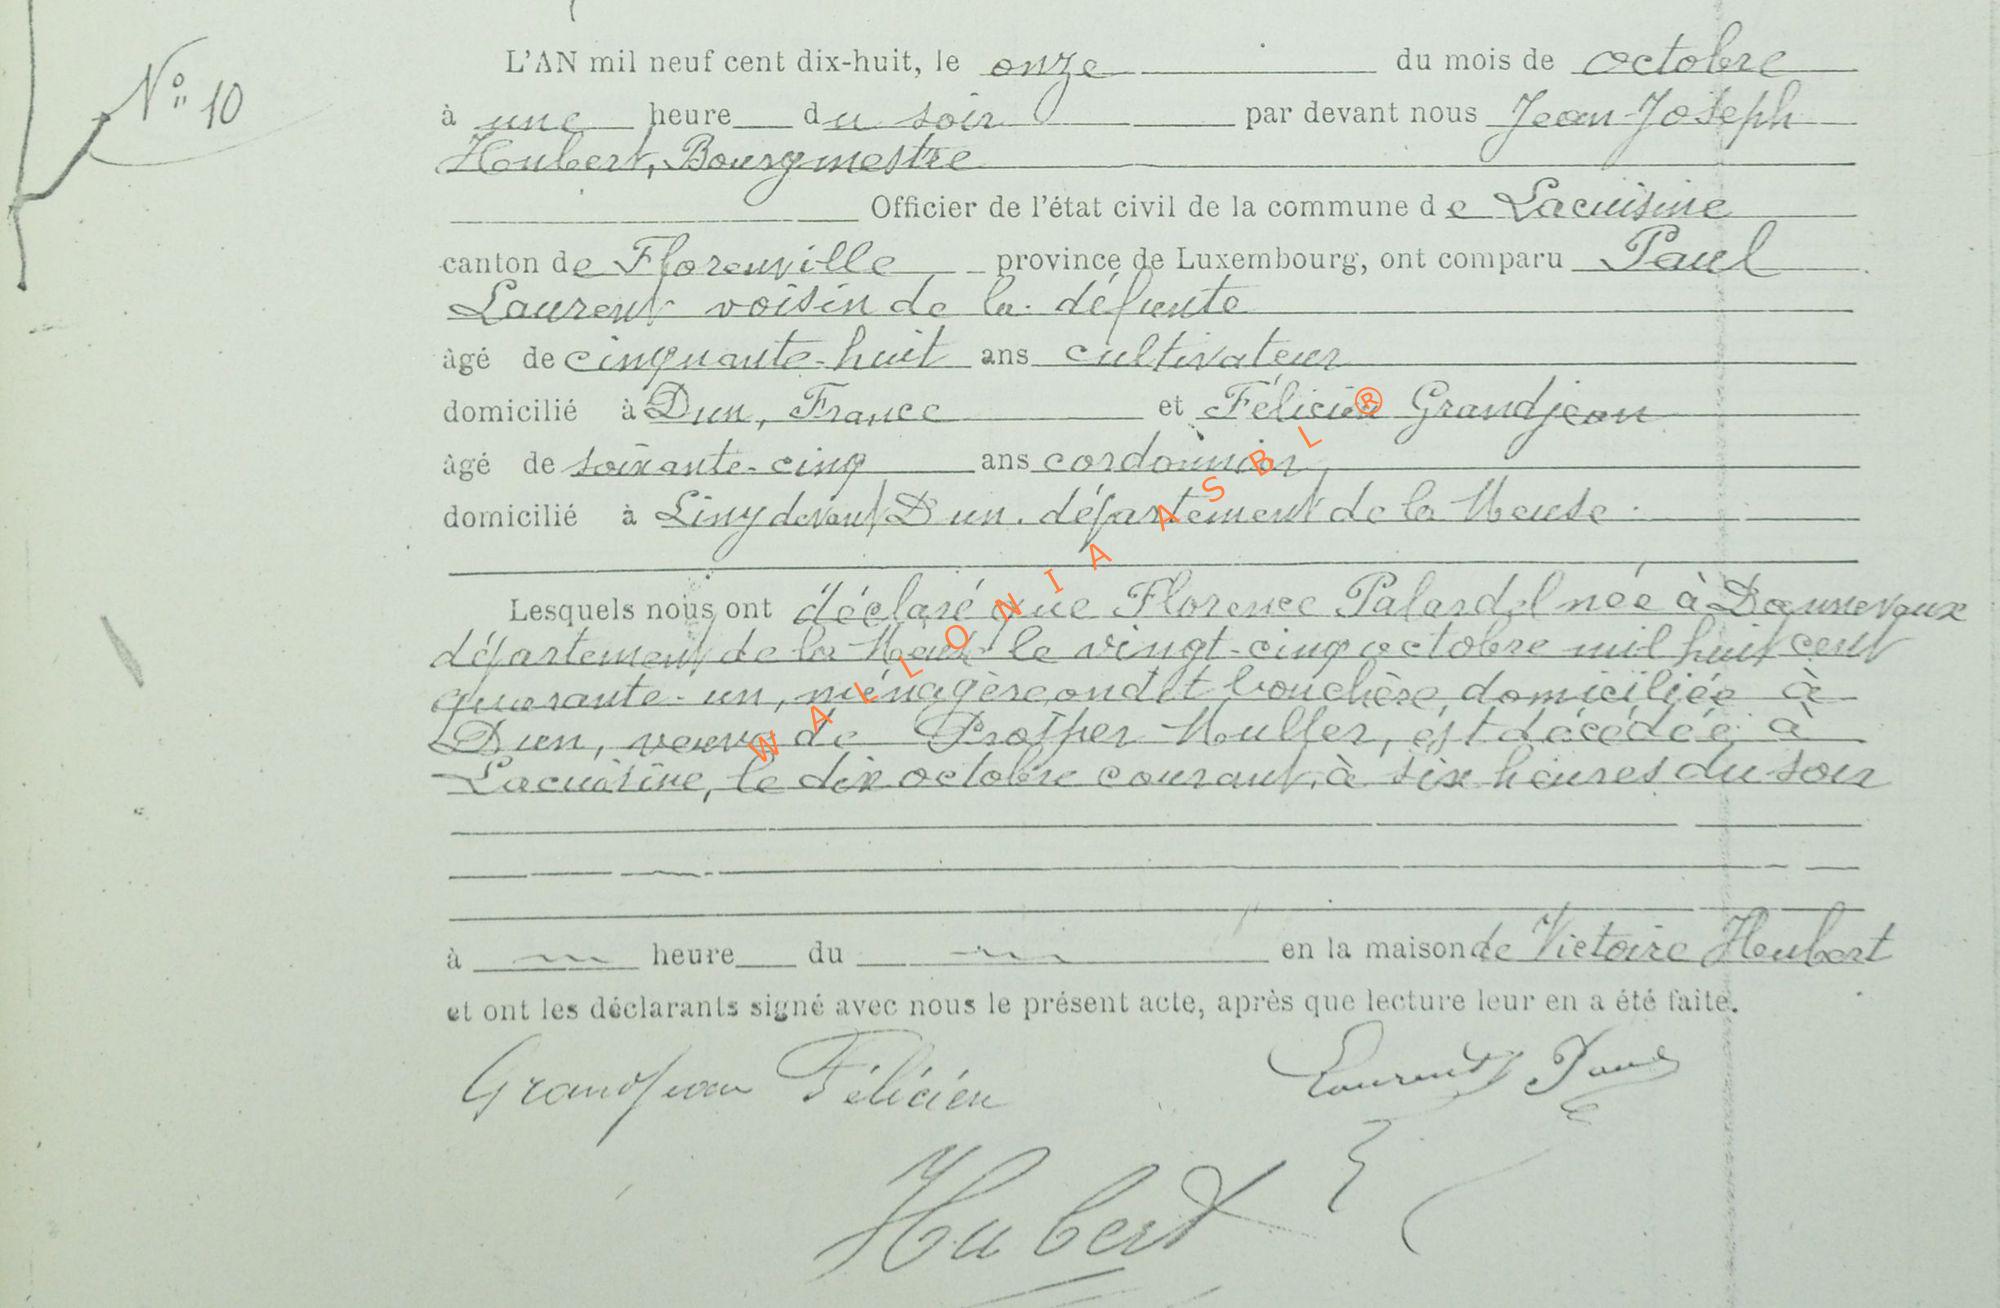 N° 10
L'AN mil neuf cent dix-huit, le onze du mois de octobre
à une heure du soir par devant nous Jean-Joseph
Hubert, Bourgmestre
Officier de l'état civil de la commune de Lacuisine
canton de Florenville province de Luxembourg, ont comparu Paul
Laurent voisin de la défunte
âgé de cinquante-huit ans cultivateur
domicilié à Dun, France et Félicien Grandjean
âgé de soixante-cinq ans cordonnier,
domicilié à Liny devant Dun. département de la Meuse.
Lesquels nous ont déclaré que Florence Palardel née à Dannevoux
département de la Meuse le vingt-cinq octobre mil huit cent
quarante-un, ménagère bouchère, domiciliée à
Dun, veuve de Prosper Muller, est décédée à
Lacuisine, le dix octobre courant, à six heures du soir
à heure du en la maison de Victoire Hubert
et ont les déclarants signé avec nous le présent acte, après que lecture leur en a été faite.
Grandjean Félicien Laurent Paul
Hubert
WALLONIA ASBL ®